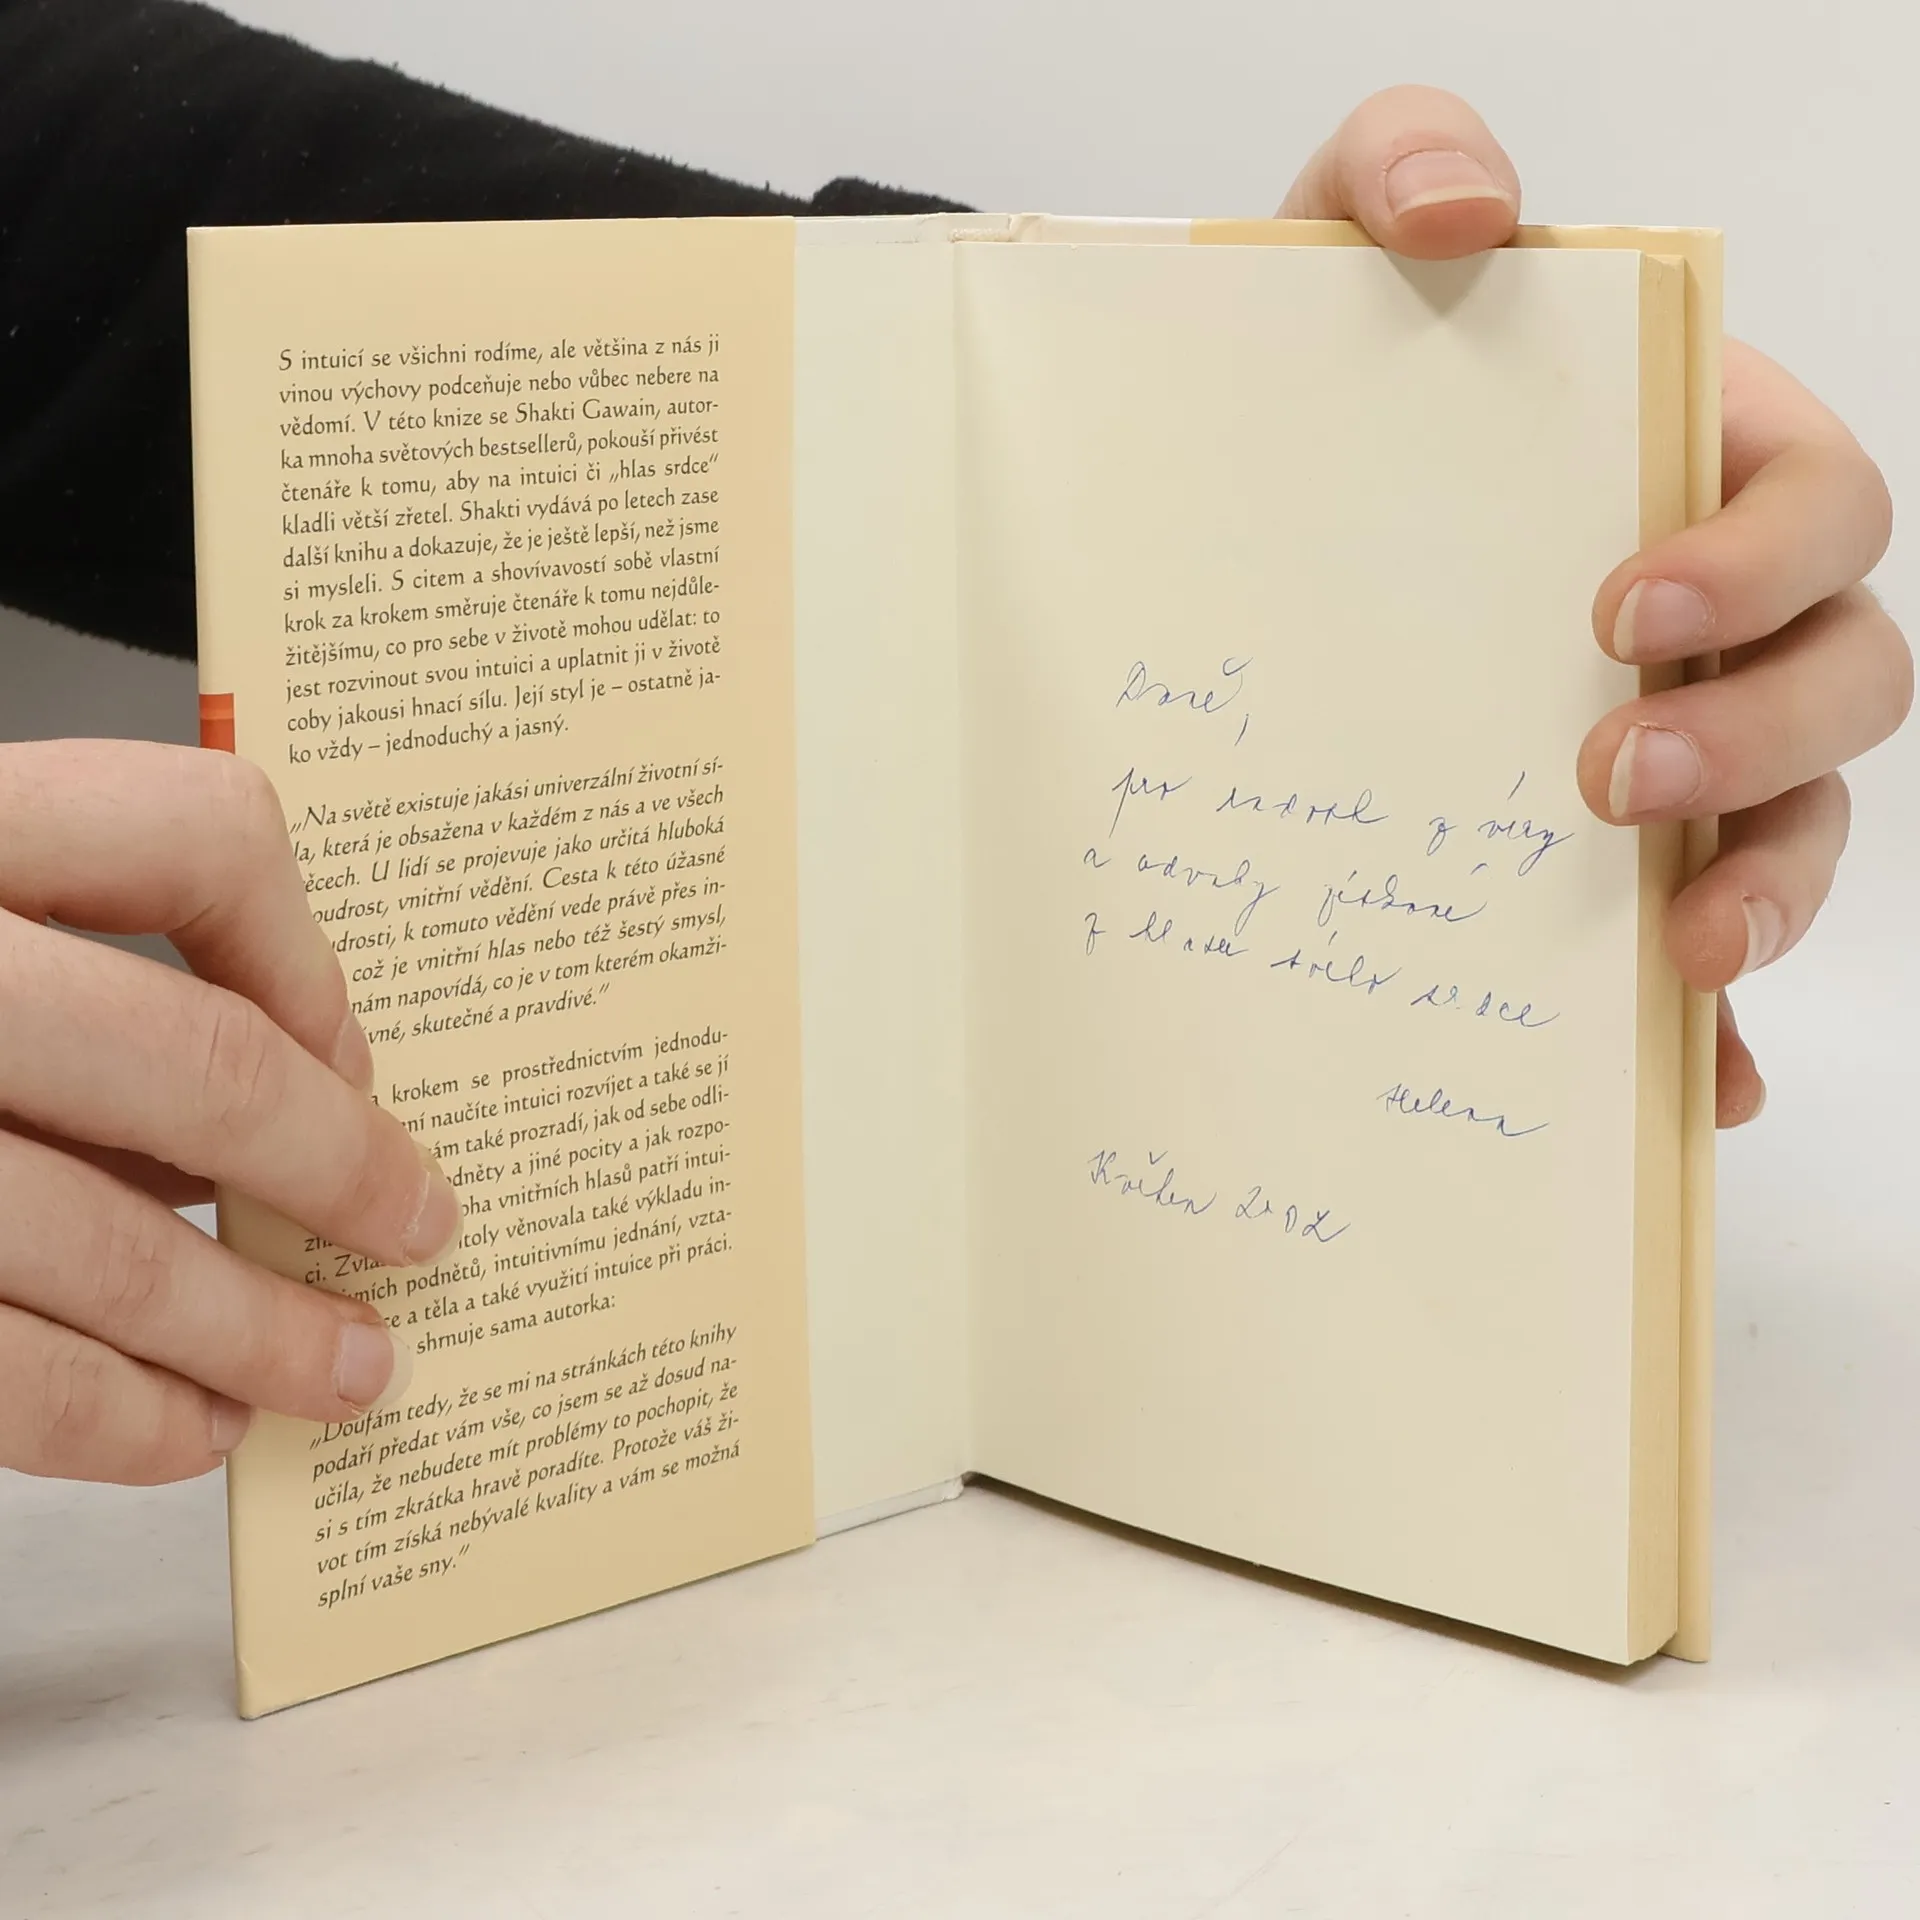 S intuicí se všichni rodíme, ale většina z nás ji
vinou výchovy podceňuje nebo vůbec nebere na
vědomí. V této knize se Shakti Gawain, autor-
ka mnoha světových bestsellerů, pokouší přivést
čtenáře k tomu, aby na intuici či „hlas srdce“
kladli větší zřetel. Shakti vydává po letech zase
další knihu a dokazuje, že je ještě lepší, než jsme
si mysleli. S citem a shovívavostí sobě vlastní
krok za krokem směruje čtenáře k tomu nejdůle-
žitějšímu, co pro sebe v životě mohou udělat: to
jest rozvinout svou intuici a uplatnit ji v životě
coby jakousi hnací sílu. Její styl je – ostatně ja-
ko vždy – jednoduchý a jasný.
„Na světě existuje jakási univerzální životní sí-
la, která je obsažena v každém z nás a ve všech
ěcech. U lidí se projevuje jako určitá hluboká
oudrost, vnitřní vědění. Cesta k této úžasné
udrosti, k tomuto vědění vede právě přes in-
což je vnitřní hlas nebo též šestý smysl,
nám napovídá, co je v tom kterém okamži-
vné, skutečné a pravdivé.“
krokem se prostřednictvím jednodu-
ní naučíte intuici rozvíjet a také se jí
ám také prozradí, jak od sebe odli-
odněty a jiné pocity a jak rozpo-
oha vnitřních hlasů patří intui-
itoly věnovala také výkladu in-
ci. ivních podnětů, intuitivnímu jednání, vzta-
ce a těla a také využití intuice při práci.
shrnuje sama autorka:
„Doufám tedy, že se mi na stránkách této knihy
podaří předat vám vše, co jsem se až dosud na-
učila, že nebudete mít problémy to pochopit, že
si s tím zkrátka hravě poradíte. Protože váš ži-
vot tím získá nebývalé kvality a vám se možná
splní vaše sny.“
Daně,
pro radost z víry
a odvahy získané
z hlasu svého srdce
Helena
Květen 2002